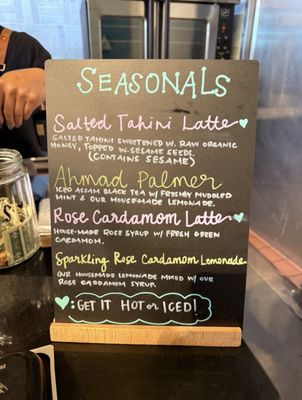 SEASONALS
Salted Tahini Latte
SALTED TAHINI SWEETENED W. RAW ORGANIC
HONEY, TOPPED W. SESAME SEEDS.
(CONTAINS SESAME)
Ahmad Palmer
ICED ASSAM BLACK TEA W/ FRESHLY MUDDLED
MINT & OUR HOUSEMADE LEMONADE.
Rose Cardamom Latte
HOUSE-MADE ROSE SYRUP W/ FRESH GREEN
CARDAMOM.
Sparkling Rose Cardamom Lemonade
OUR HOUSEMADE LEMONADE MIXED W/ OUR
ROSE CARDAMOM SYRUP.
:GET IT HOT OR ICED!